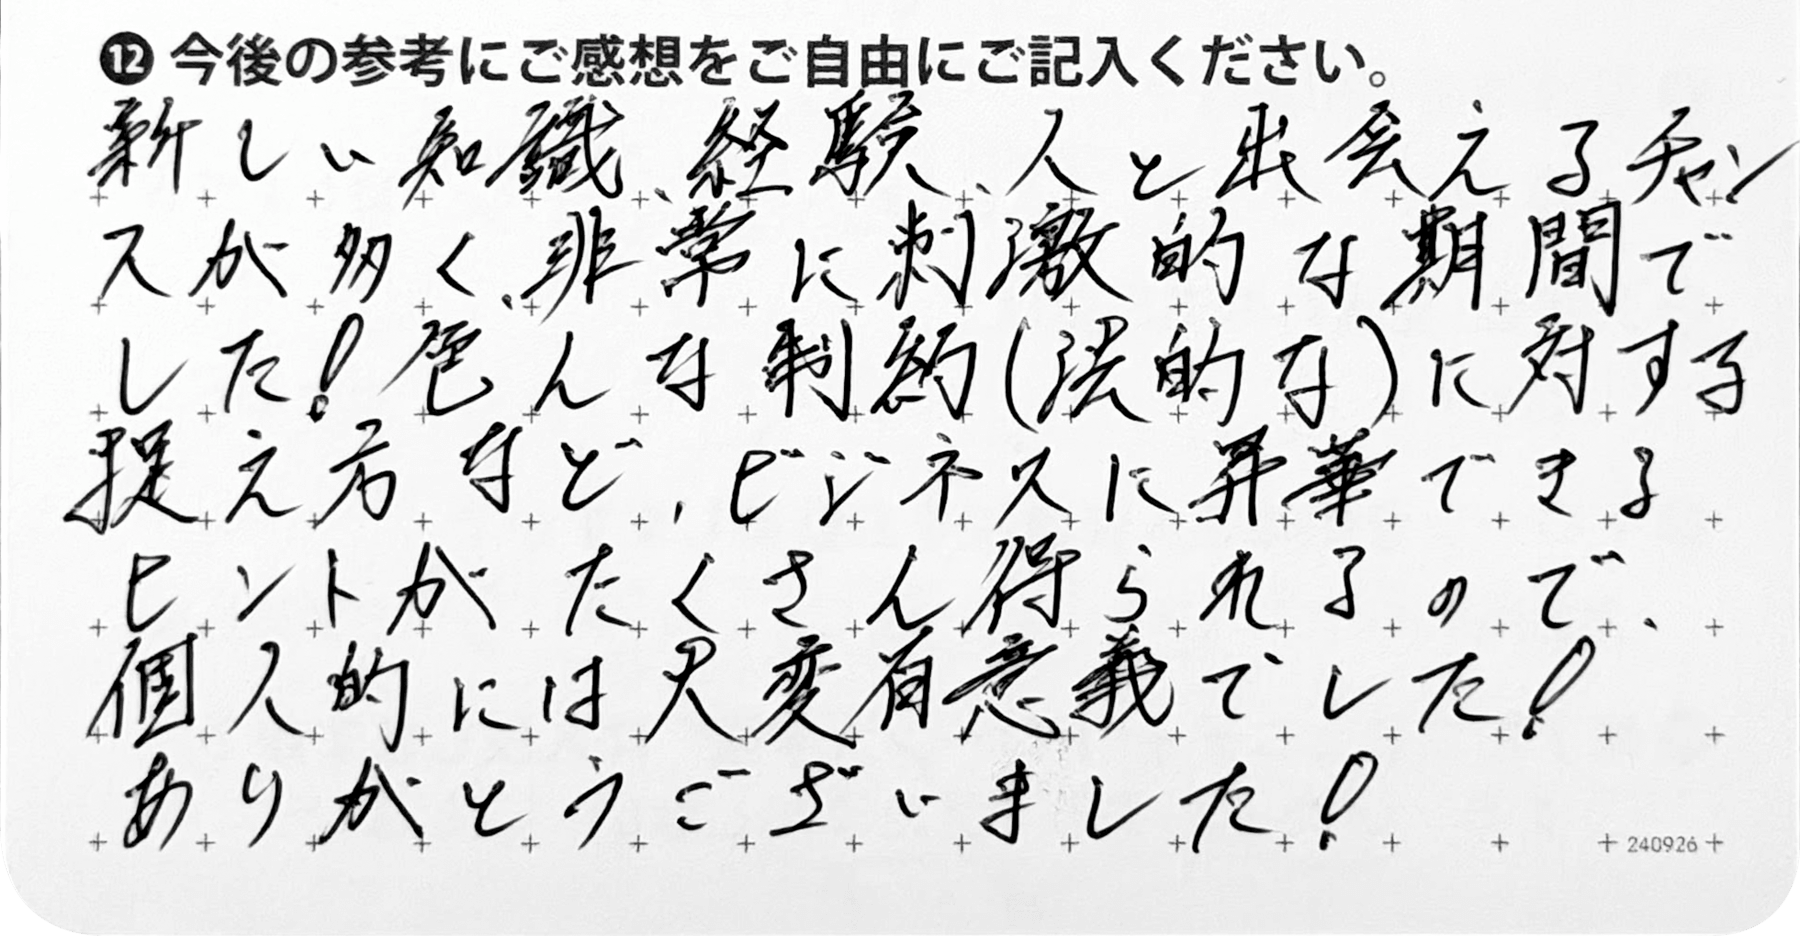 ⓬ 今後の参考にご感想をご自由にご記入ください。
新しい知識、経験、人と出会えるチャン
スが多く、非常に刺激的な期間で
した!色んな制約(法的な)に対する
捉え方など、ビジネスに昇華できる
ヒントがたくさん得られるので、
個人的には大変有意義でした!
ありがとうございました!
240926